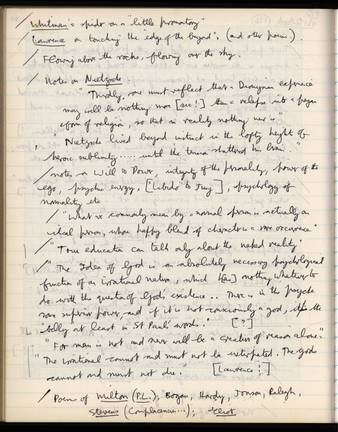 Whitman's spider on a "little promontory"
Lawrence on touching the "edge of the beyond", (and other poems).
/ Flowing above the rocks, flowing over the sky.
/ Notes on Nietzsche
"Thirdly, one must reflect that a Dionysian experience
may well be nothing more [sic!] than a relapse into a pagan
form of religion, so that in reality nothing new is
" Nietzsche lived beyond instinct in the lofty heights of
heroic sublimity..... until the tension shattered his brain."
/ notes on Will to Power, integrity of the personality, power of the
ego, psychic energy, [Libido to Jung], psychology of
normality etc
/ "What we commonly mean by a 'normal person' is actually an
ideal person, whose happy blend of character is a rare occurrence"
/ "True educator can tell only about the naked reality"
/ "The Idea of God is an absolutely necessary psychological
function of an irrational nature, which has nothing whatever to
do with the question of God's existence .. There is in the psyche
some superior power, and if it is not consciously a god, it is the
belly at least in St Paul's words." [?]
/ "For man is not and never will be a creature of reason alone"
"The irrational cannot and must not be extirpated. The gods
cannot and must not die." [Lawrence;]
/ Poems of Milton (P.L.), Bogan, Hardy, Jonson, Raleigh,
Stevens (Complacencies...); Eliot